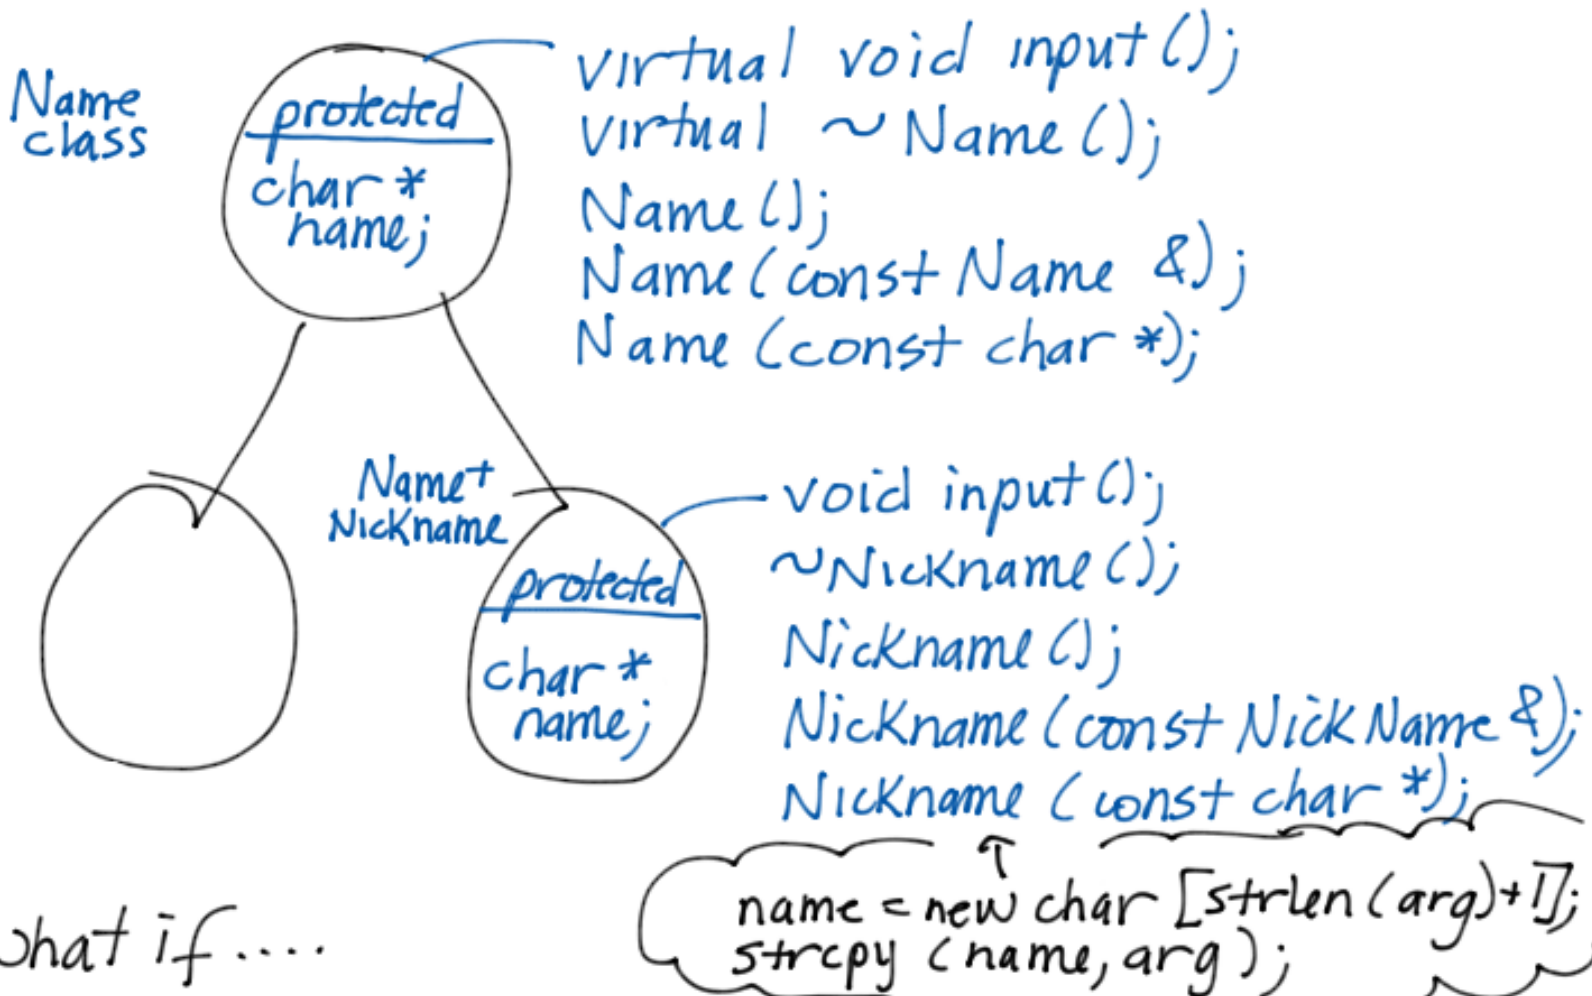 Name
class
protected
char *
name;
virtual void input();
virtual ~Name();
Name();
Name(const Name &);
Name(const char *);
Name+
Nickname
protected
char *
name;
void input();
~Nickname();
Nickname();
Nickname(const NickName &);
Nickname(const char *);
name = new char [strlen(arg)+1];
strcpy(name, arg);
what if....